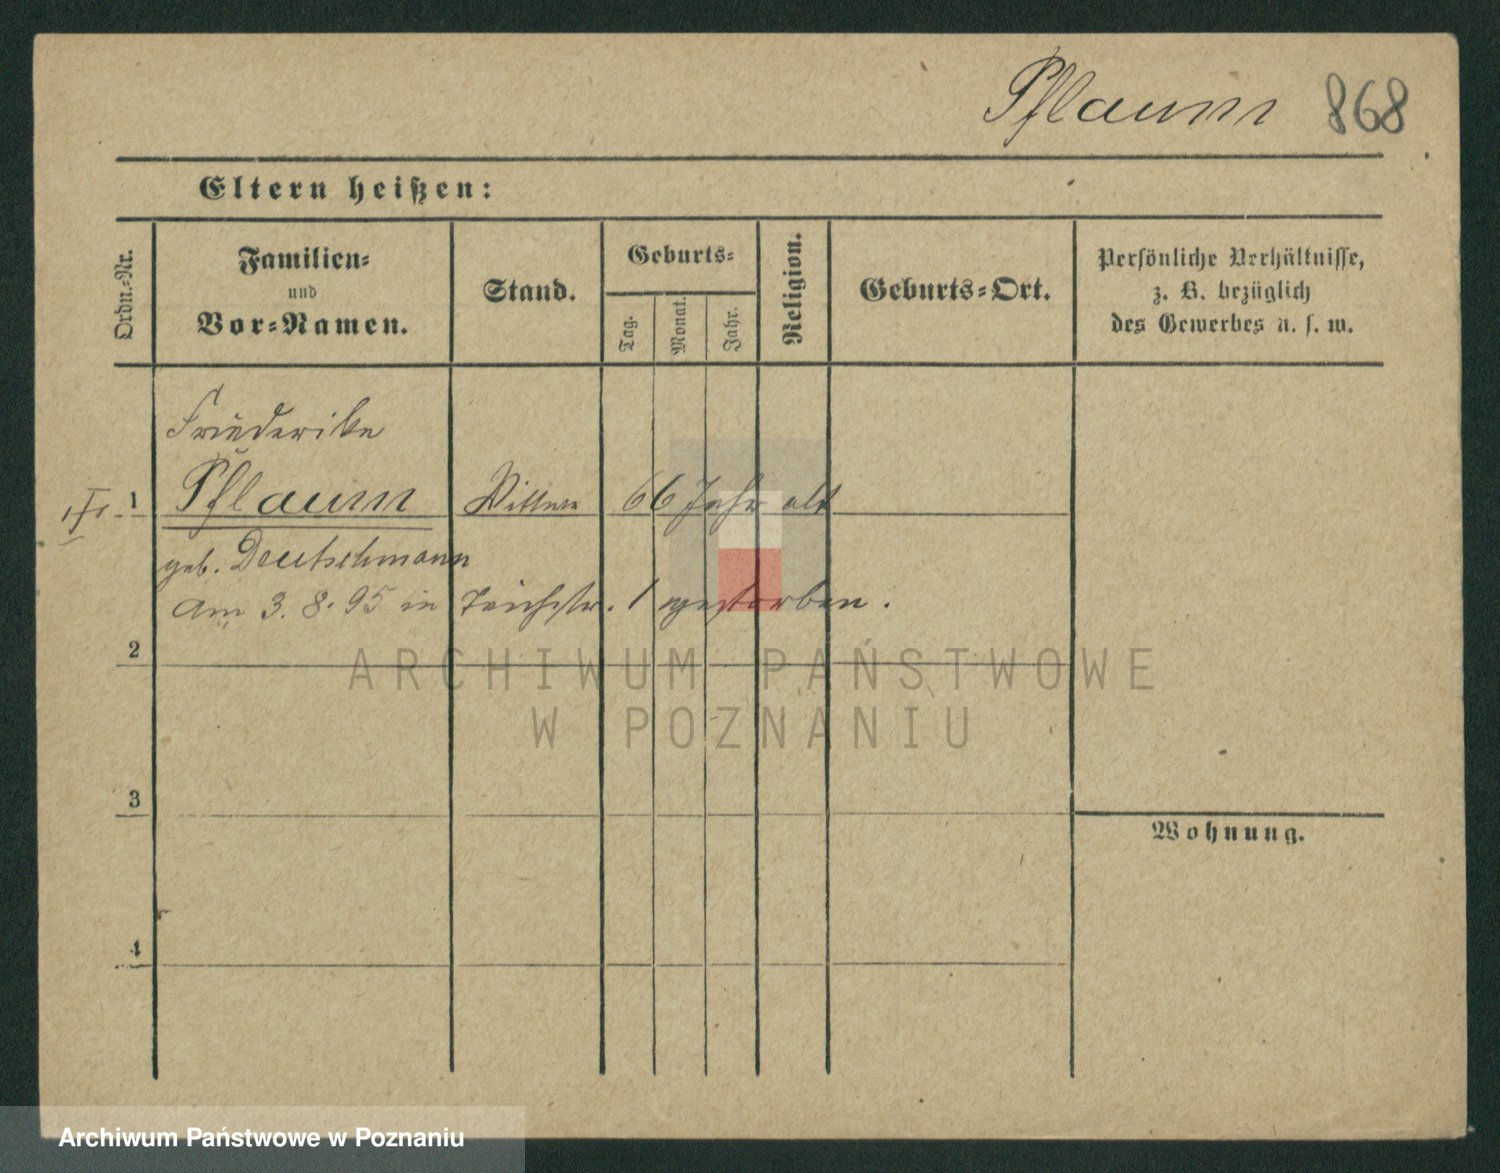 Pflaum 868
Eltern heißen:
Ordn.-Nr.
Familien-
und
Vor-Namen.
Stand.
Geburts-
Tag.
Monat.
Jahr.
Religion.
Geburts-Ort.
Persönliche Verhältnisse,
z. B. bezüglich
des Gewerbes u. s. w.
Friederike
1 Pflaum Wittwe 66 Jahr alt
geb. Deutschmann
am 3. 8. 95 in Teichstr. 1 gestorben.
2
3
4
Wohnung.
ARCHIWUM PAŃSTWOWE
W POZNANIU
Archiwum Państwowe w Poznaniu